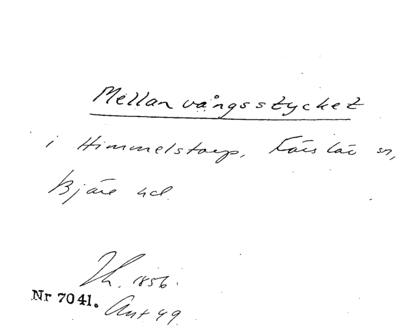 Mellanvångsstycket
i Himmelstorp, Fårslöv sn,
Bjäre hd.
Th. 1856.
Nr 7041.
Ant 49.